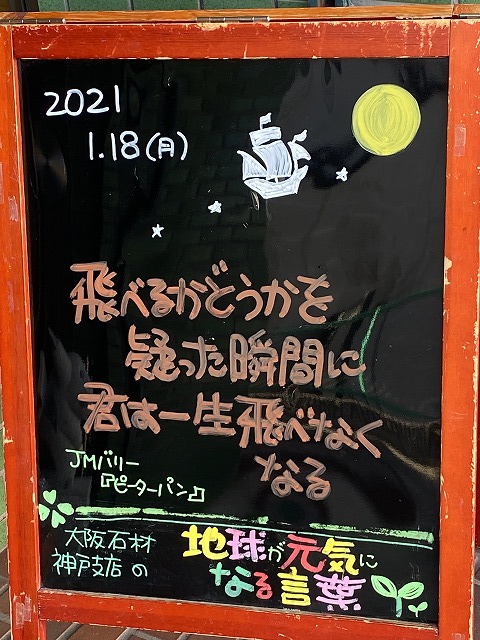 2021
1.18(月)
飛べるかどうかを
疑った瞬間に
君は一生飛べなく
なる
JMバリー
『ピーターパン』
大阪石材
神戸支店の
地球が元気に
なる言葉